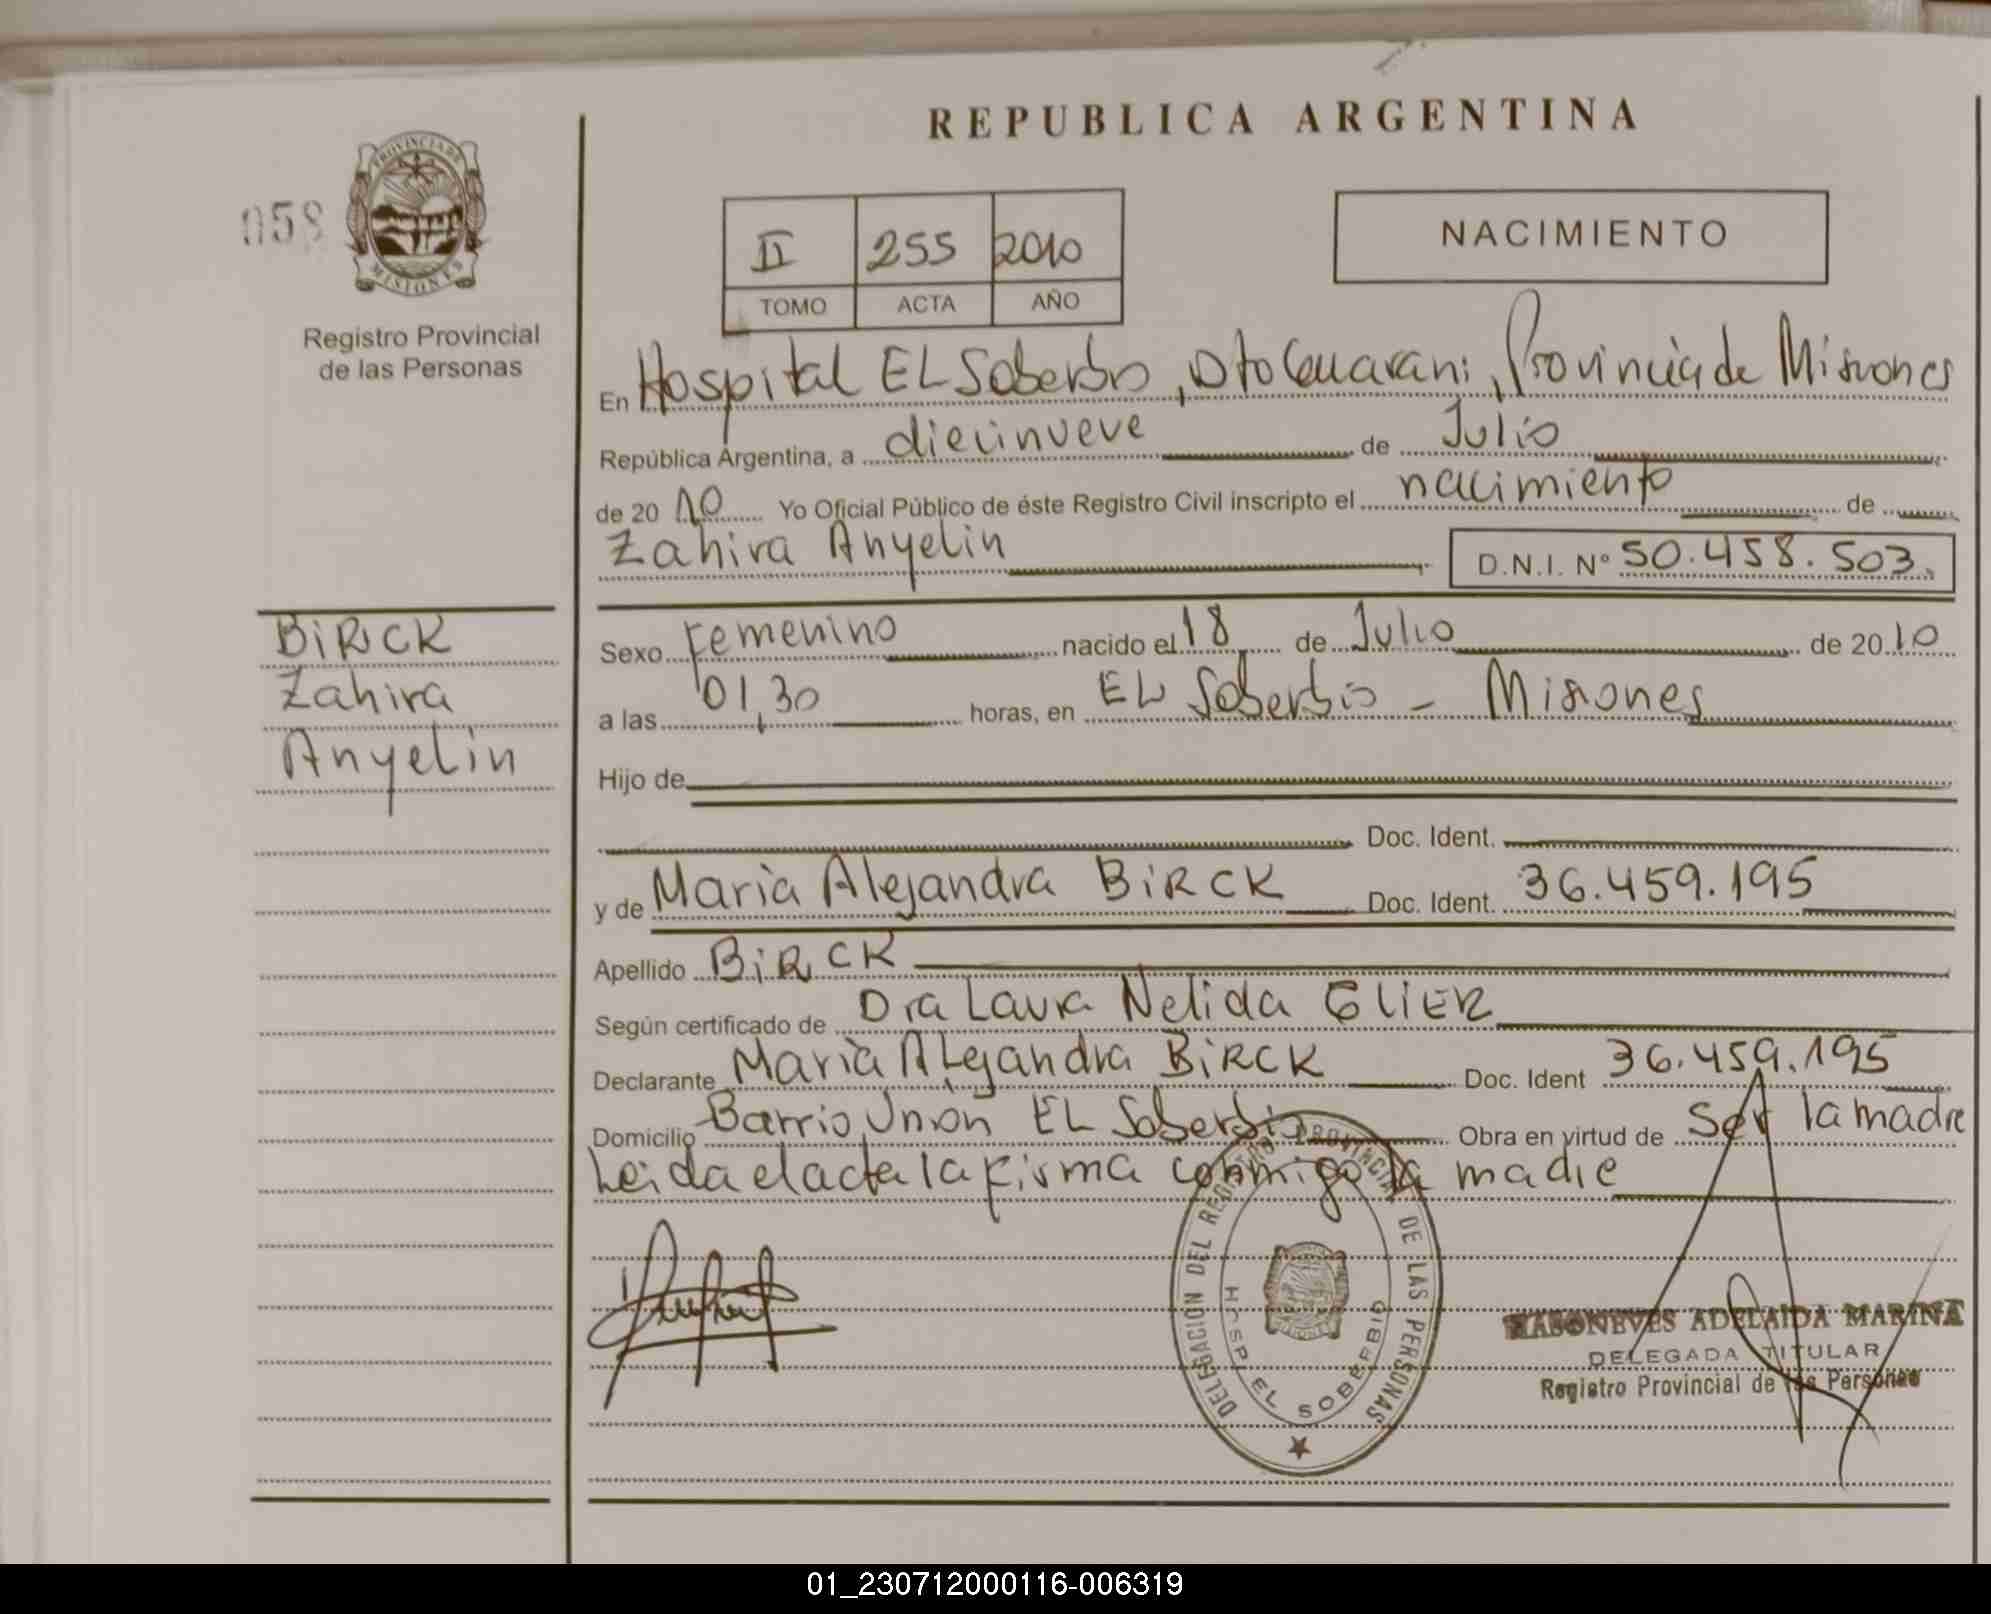 REPUBLICA ARGENTINA
058
PROVINCIA DE MISIONES
Registro Provincial
de las Personas
II 255 2010
TOMO ACTA AÑO
NACIMIENTO
En Hospital EL Soberbio, Dto Guarani, Provincia de Misiones
República Argentina, a diecinueve de Julio
de 20 10 Yo Oficial Público de éste Registro Civil inscripto el nacimiento de
Zahira Anyelin D.N.I. Nº 50.458.503.
BIRCK
Zahira
Anyelin
Sexo Femenino nacido el 18 de Julio de 20 10
a las 01,30 horas, en EL Soberbio - Misiones
Hijo de
Doc. Ident.
y de Maria Alejandra BIRCK Doc. Ident. 36.459.195
Apellido BIRCK
Según certificado de Dra Laura Nelida GLIER
Declarante Maria Alejandra BIRCK Doc. Ident 36.459.195
Domicilio Barrio Union EL Soberbio Obra en virtud de Ser la madre
Leida el acta la firma conmigo la madre
DELEGACION DEL REGISTRO PROVINCIAL DE LAS PERSONAS
HOSP. EL SOBERBIO
ADELAIDA MARINA
DELEGADA TITULAR
Registro Provincial de las Personas
01_230712000116-006319